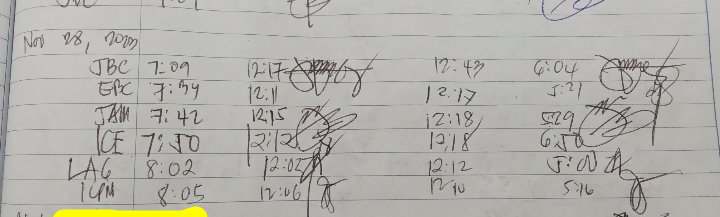 Nov 28, 2020
JBC 7:09 12:17 12:43 6:04
EBC 7:34 12:11 12:17 5:21
JAM 7:42 12:15 12:18 529
ICE 7:50 12:12 12:18 6:50
LAG 8:02 12:02 12:12 5:00
ICPM 8:05 12:06 12:10 5:16